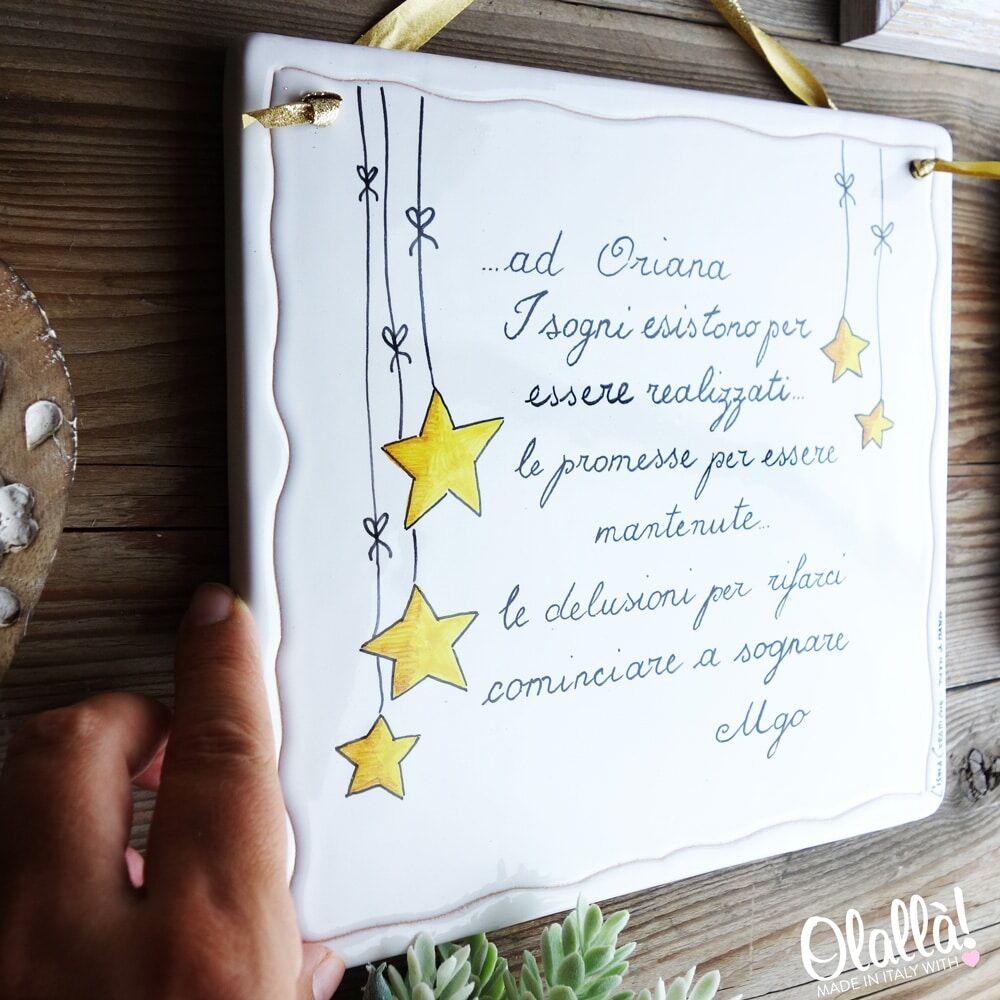 ...ad Oriana
I sogni esistono per
essere realizzati...
le promesse per essere
mantenute...
le delusioni per rifarci
cominciare a sognare
Ugo
Olallà!
MADE IN ITALY WITH